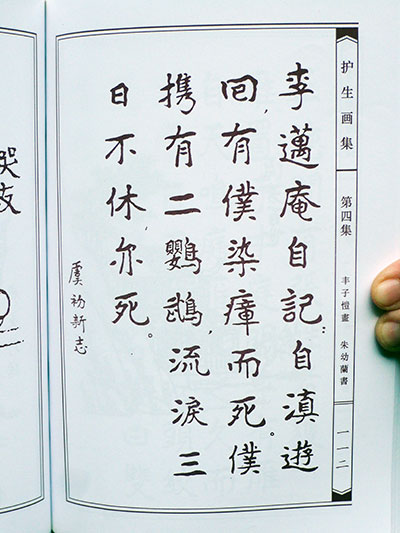 李邁庵自記：自滇遊
回，有僕染瘴而死。僕
携有二鸚鵡，流淚三
日不休，尔死。
虞初新志
护生画集
第四集
丰子愷畫 朱幼蘭書
一一二